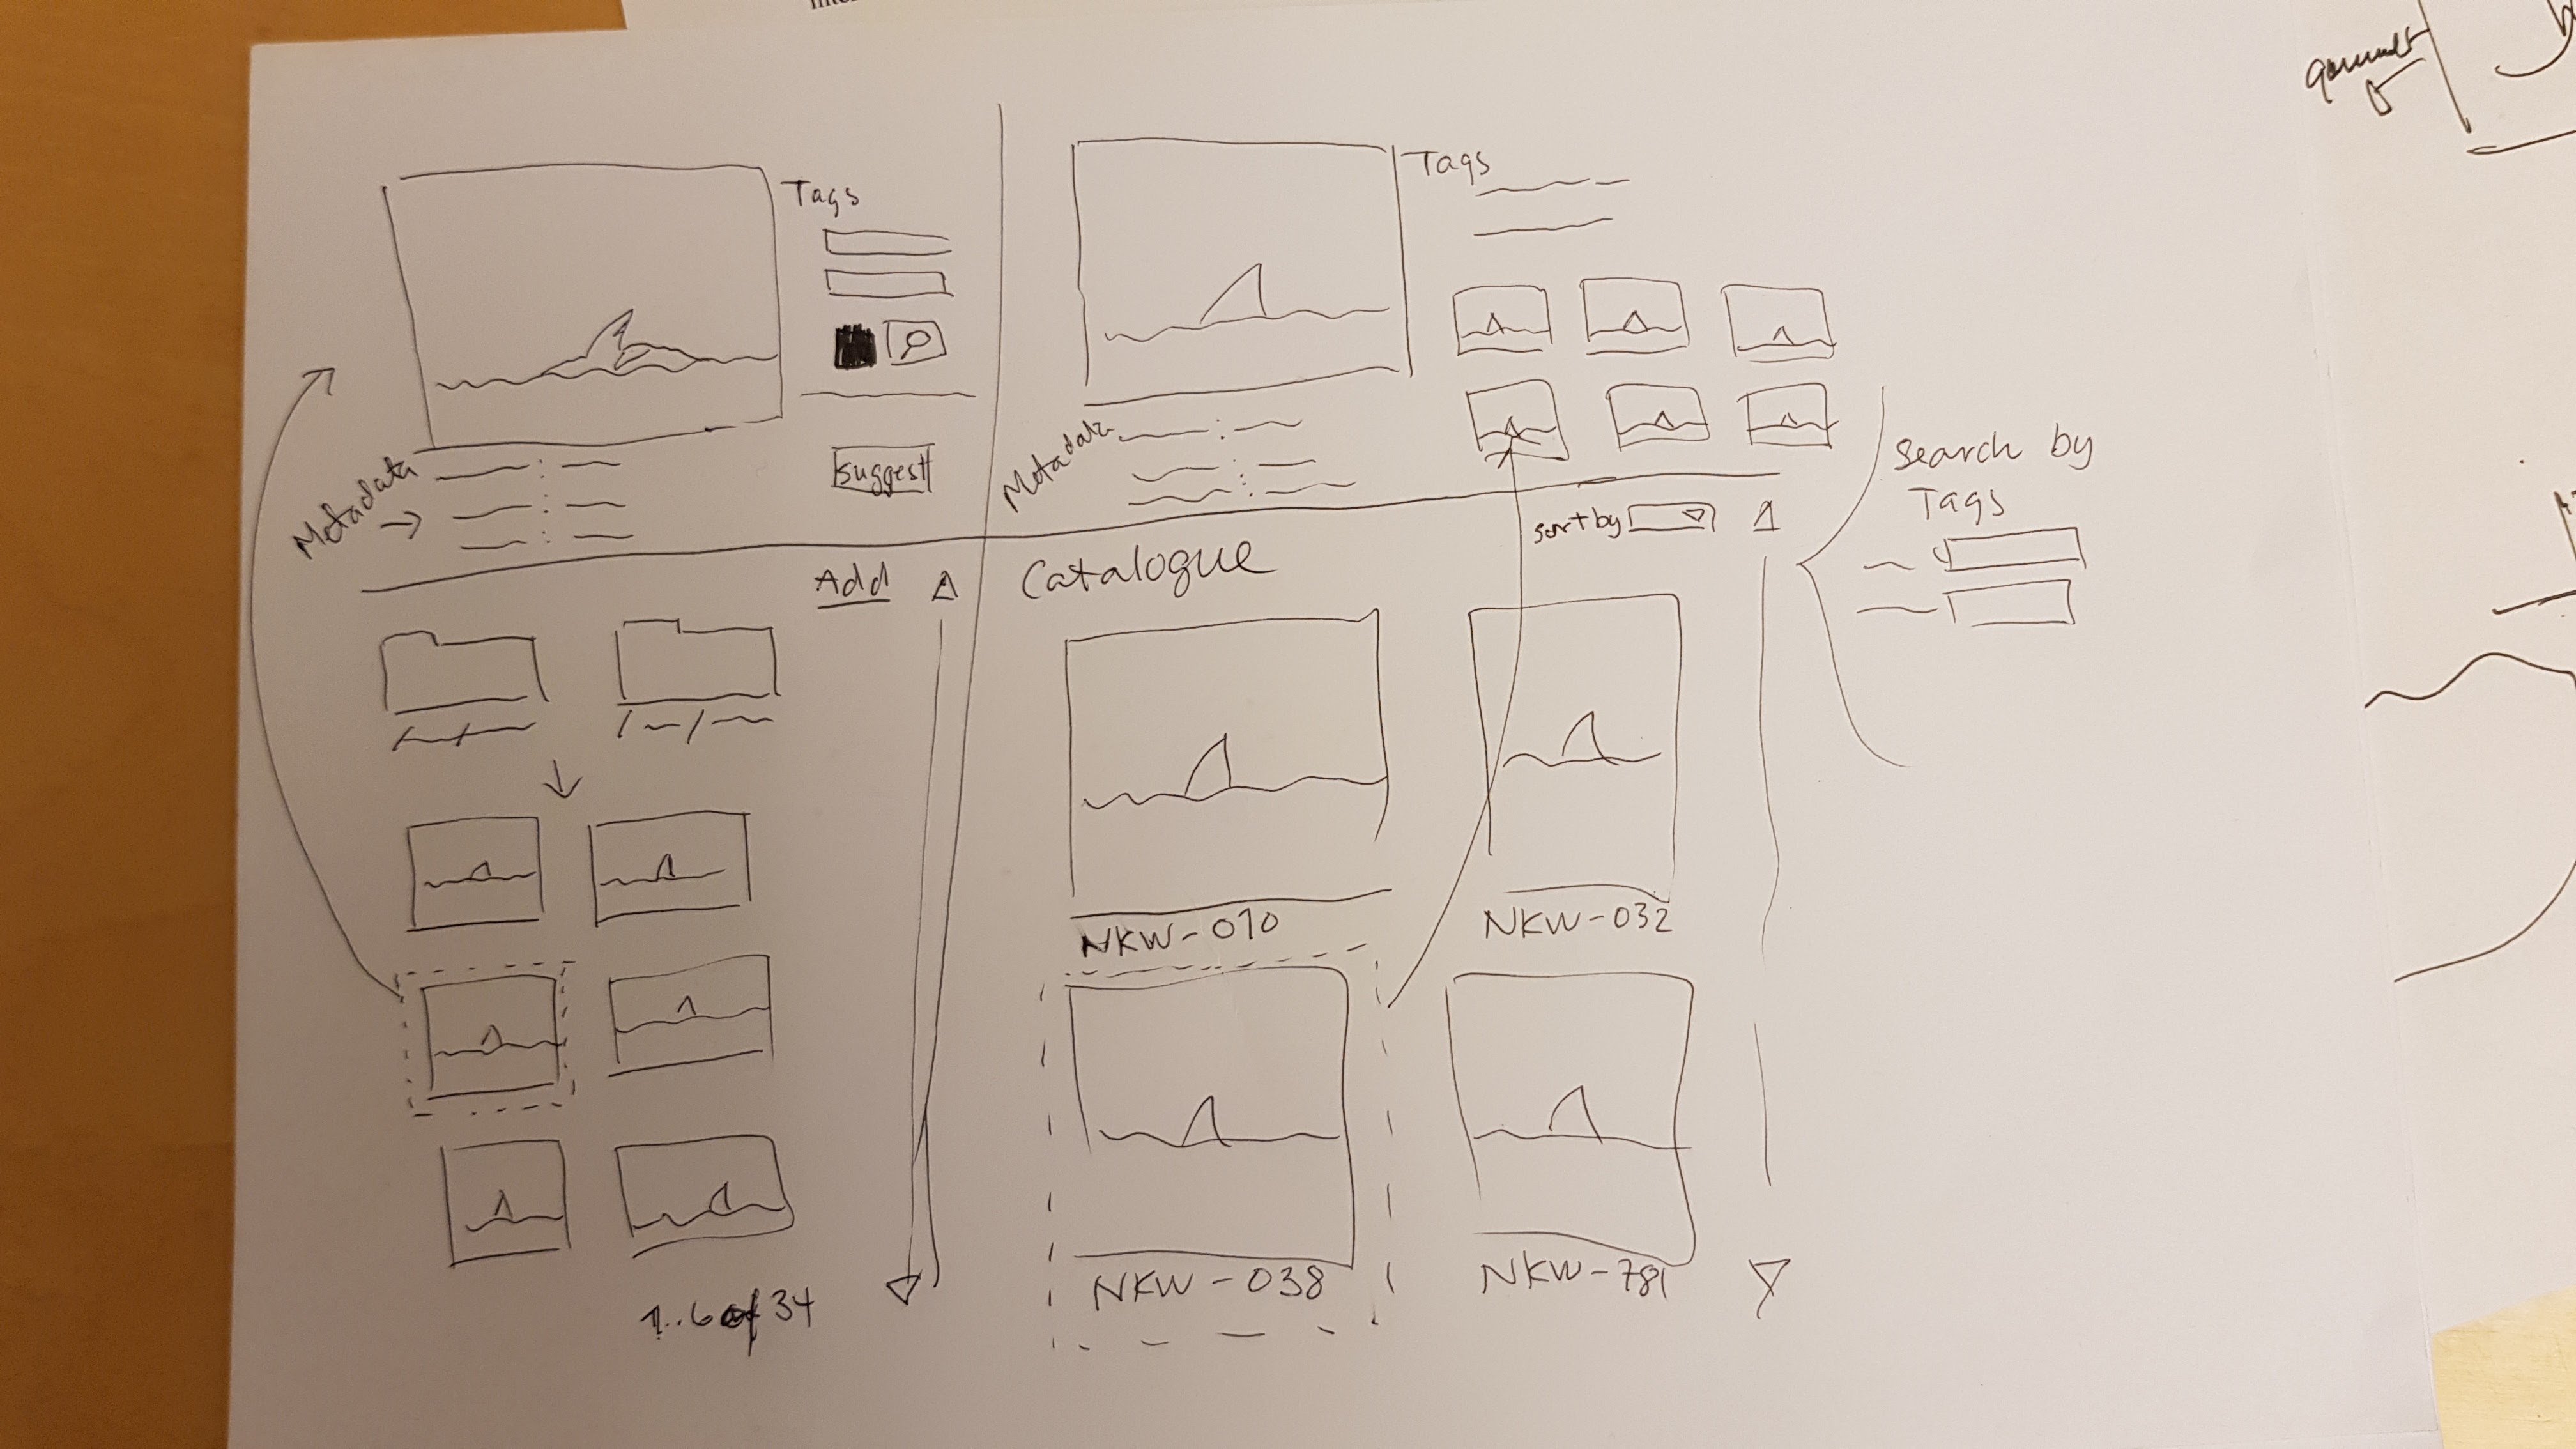 Tags
Metadata
suggest
Add
1..6 of 34
Tags
Metadata
sort by
Catalogue
NKW-070
NKW-032
NKW-038
NKW-781
Search by
Tags